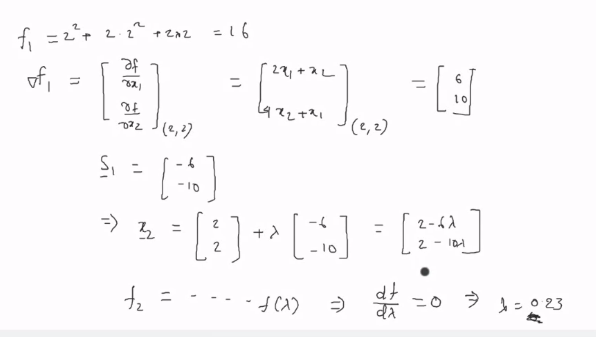 f₁ = 2² + 2·2² + 2×2 = 16
∇f₁ = [∂f/∂x₁ ∂f/∂x₂](2,2) = [2x₁+x₂ 4x₂+x₁](2,2) = [6 10]
S₁ = [-6 -10]
⇒ x₂ = [2 2] + λ [-6 -10] = [2-6λ 2-10λ]
f₂ = - - - - f(λ) ⇒ df/dλ = 0 ⇒ λ = 0.23